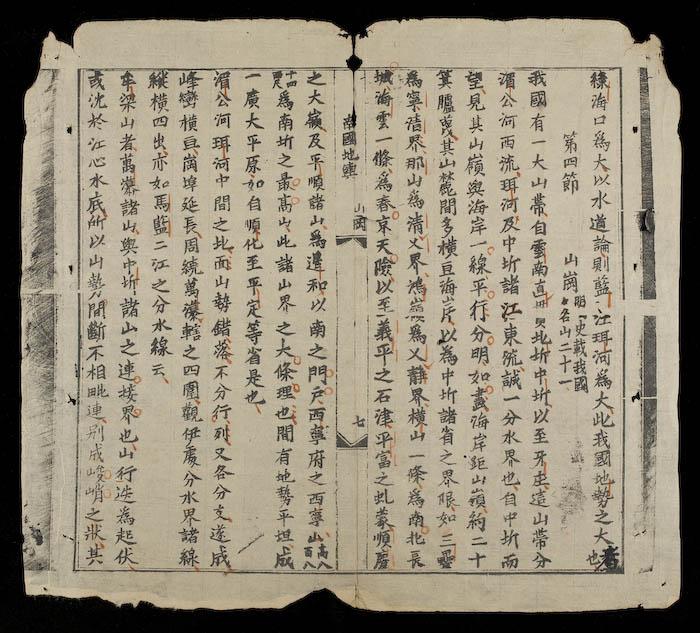 綠海口爲大以水道論則藍江珥河爲大此我國地勢之大者也
第四節 山崗 明史載我國名山二十一
我國有一大山帶自雲南直與北圻中圻以至牙庄這山帶分
湄公河西流珥河及中圻諸江東流誠一分水界也自中圻而
望見其山嶺與海岸一線平行分明如畫海岸距山嶺約二十
箕臚蔑其山麓間多橫亘海岸以爲中圻諸省之界限如三疊
爲寧清界那山爲清乂界鴻嶺爲乂靜界橫山一條爲南北長
城海雲一條爲春京天險以至義平之石津平富之虬蒙順慶
南國地輿 山崗 七
之大嶺及平順諸山爲邊和以南之門戶西寧府之西寧山高八百八十四尺
爲南圻之最高山此諸山界之大條理也間有地勢平坦成
一廣大平原如自順化至平定等省是也
湄公河珥河中間之北面山勢錯落不分行列又各分支遂成
峰巒橫亘崗埠延長周繞萬瀿轄之四圍觀伊處分水界諸線
縱橫四出亦如馬藍二江之分水線云
牟梁山者萬瀿諸山與中圻諸山之連接界也山行迭爲起伏
或沈於江心水底所以山勢間斷不相毗連別成峻峭之狀其